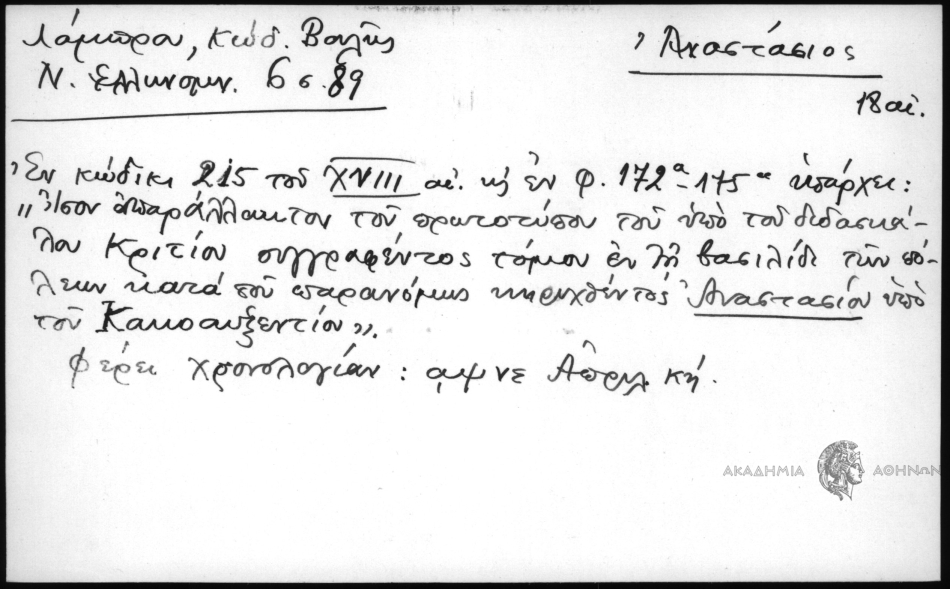 Λάμπρου, Κώδ. Βουλῆς
Ν. Ἑλληνομν. 6 σ. 89
Ἀναστάσιος
18 αἰ.
Ἐν κώδικι 215 τοῦ XVIII αἰ. κ ἐν φ. 172α-175α ὑπάρχει:
„Ἴσον ἀπαράλλακτον τοῦ πρωτοτύπου τοῦ ὑπὸ τοῦ διδασκά-
λου Κριτίου συγγραφέντος τόμου ἐν τῇ βασιλίδι τῶν πό-
λεων κατά τοῦ παρανόμως κηρυχθέντος Ἀναστασίου ὑπὸ
τοῦ Κακοαυξεντίου".
φέρει χρονολογίαν: αψνε Ἀπριλ κή.
ΑΚΑΔΗΜΙΑ ΑΘΗΝΩΝ